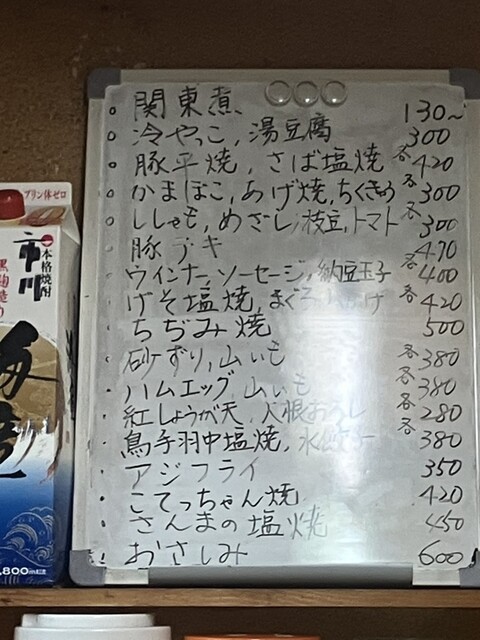 関東煮 130~
冷やっこ, 湯豆腐 300
豚平焼, さば塩焼 各420
かまぼこ, あげ焼, ちくきゅう 各300
ししゃも, めざし, 枝豆, トマト 各300
豚テキ 470
ウインナーソーセージ, 納豆玉子 各400
げそ塩焼, まぐろ 各420
ちぢみ焼 500
砂ずり, 山いも 各380
ハムエッグ 山いも 各380
紅しょうが天, 大根おろし 各280
鳥手羽中塩焼, 水餃子 各380
アジフライ 350
こてっちゃん焼 420
さんまの塩焼 450
おさしみ 600
プリン体ゼロ
本格焼酎
市川
黒麹造り
1,800ml